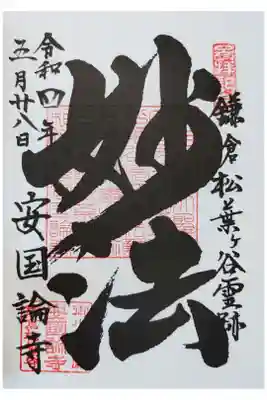 鎌倉松葉ヶ谷霊跡
妙法
令和四年
五月廿八日
安国論寺